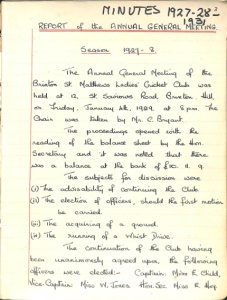 MINUTES 1927-28
1931
REPORT of the ANNUAL GENERAL MEETING.
Season 1927-8.
The Annual General Meeting of the
Brixton St. Matthews Ladies' Cricket Club
was held at 12, St. Saviours Road, Brixton Hill,
on Friday, January 6th, 1929. at 8 p.m. The
Chair was taken by Mr. C. Bryant.
The proceedings opened with the
reading of the balance sheet by the Hon.
Secretary and it was noted that there
was a balance at the bank of
The subjects for discussion were
(i) The advisability of continuing the Club.
(ii) The election of officers, should the first motion
be carried.
(iii) The acquiring of a ground.
(iv) The running of a Whist Drive.
The continuation of the Club having
been unanimously agreed upon, the following
officers were elected:- Captain: Miss E. Child,
Vice-Captain: Miss W. Jones Hon. Sec. Miss R. Hap